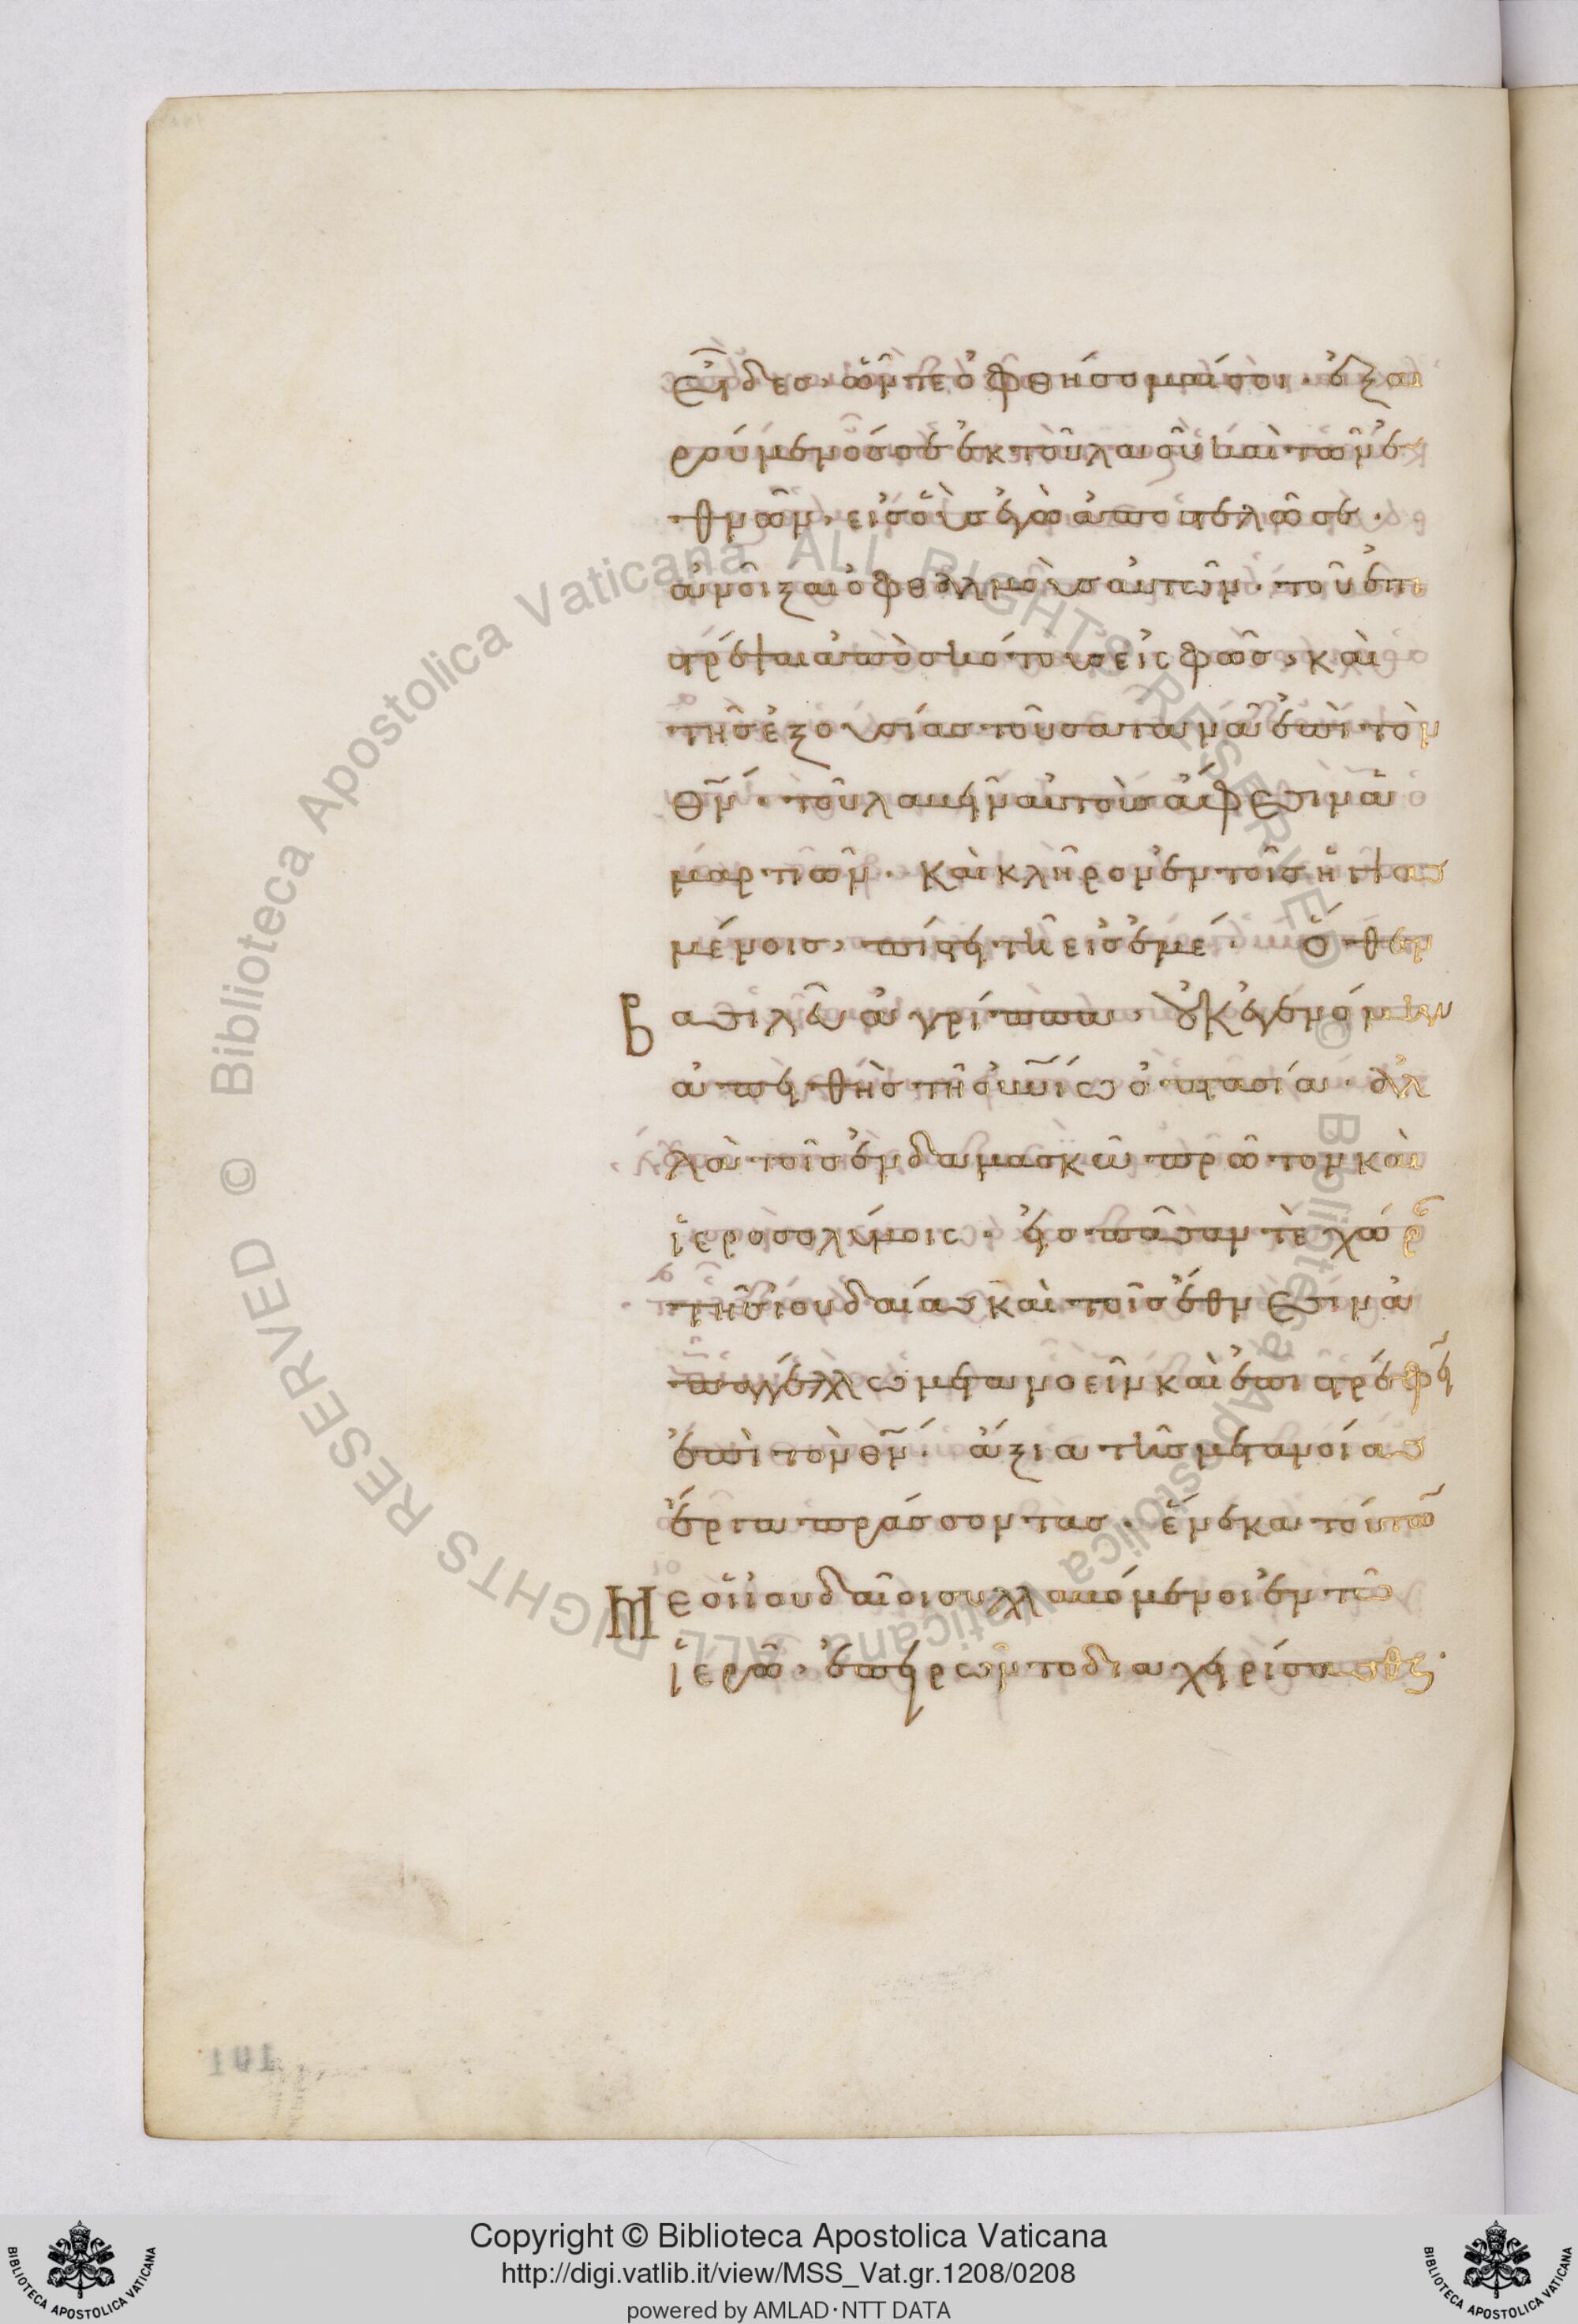 εἶδες· ὧν τε ὀφθήσομαί σοι· ἐξαι
ρούμενός σε ἐκ τοῦ λαοῦ καὶ τῶν ἐ
θνῶν, εἰς οὓς ἐγὼ ἀποστελῶ σε·
ἀνοῖξαι ὀφθαλμοὺς αὐτῶν· τοῦ ἐπι
στρέψαι ἀπὸ σκότους εἰς φῶς, καὶ
τῆς ἐξουσίας τοῦ σατανᾶ ἐπὶ τὸν
θν̅· τοῦ λαβεῖν αὐτοὺς ἄφεσιν ἁ
μαρτιῶν· καὶ κλῆρον ἐν τοῖς ἡγιασ
μένοις, πίστει τῆ εἰς ἐμέ· ὅθεν
βασιλεῦ ἀγρίππα, οὐκ ἐγενόμην
ἀπειθὴς τῆ οὐνίω ὀπτασία· ἀλ
λὰ τοῖς ἐν δαμασκῶ πρῶτον καὶ
ἱεροσολύμοις· εἰς πᾶσαν τὲ χώρ
τῆς ἰουδαίας καὶ τοῖς ἔθνεσιν ἀ
παγγέλλω μετανοεῖν καὶ ἐπιστρέφει
ἐπὶ τὸν θν̅· ἄξια τῆς μετανοίας
ἔργα πράσσοντας· ἕνεκα τούτω
με οἱ ἰουδαῖοι συλλαβόμενοι ἐν τῶ
ἱερῶ· ἐπειρῶντο διαχειρίσασθαι·
101
Copyright © Biblioteca Apostolica Vaticana
http://digi.vatlib.it/view/MSS_Vat.gr.1208/0208
powered by AMLAD·NTT DATA
© Biblioteca Apostolica Vaticana ALL RIGHTS RESERVED © Biblioteca Apostolica Vaticana ALL RIGHTS RESERVED
BIBLIOTECA APOSTOLICA VATICANA
BIBLIOTECA APOSTOLICA VATICANA